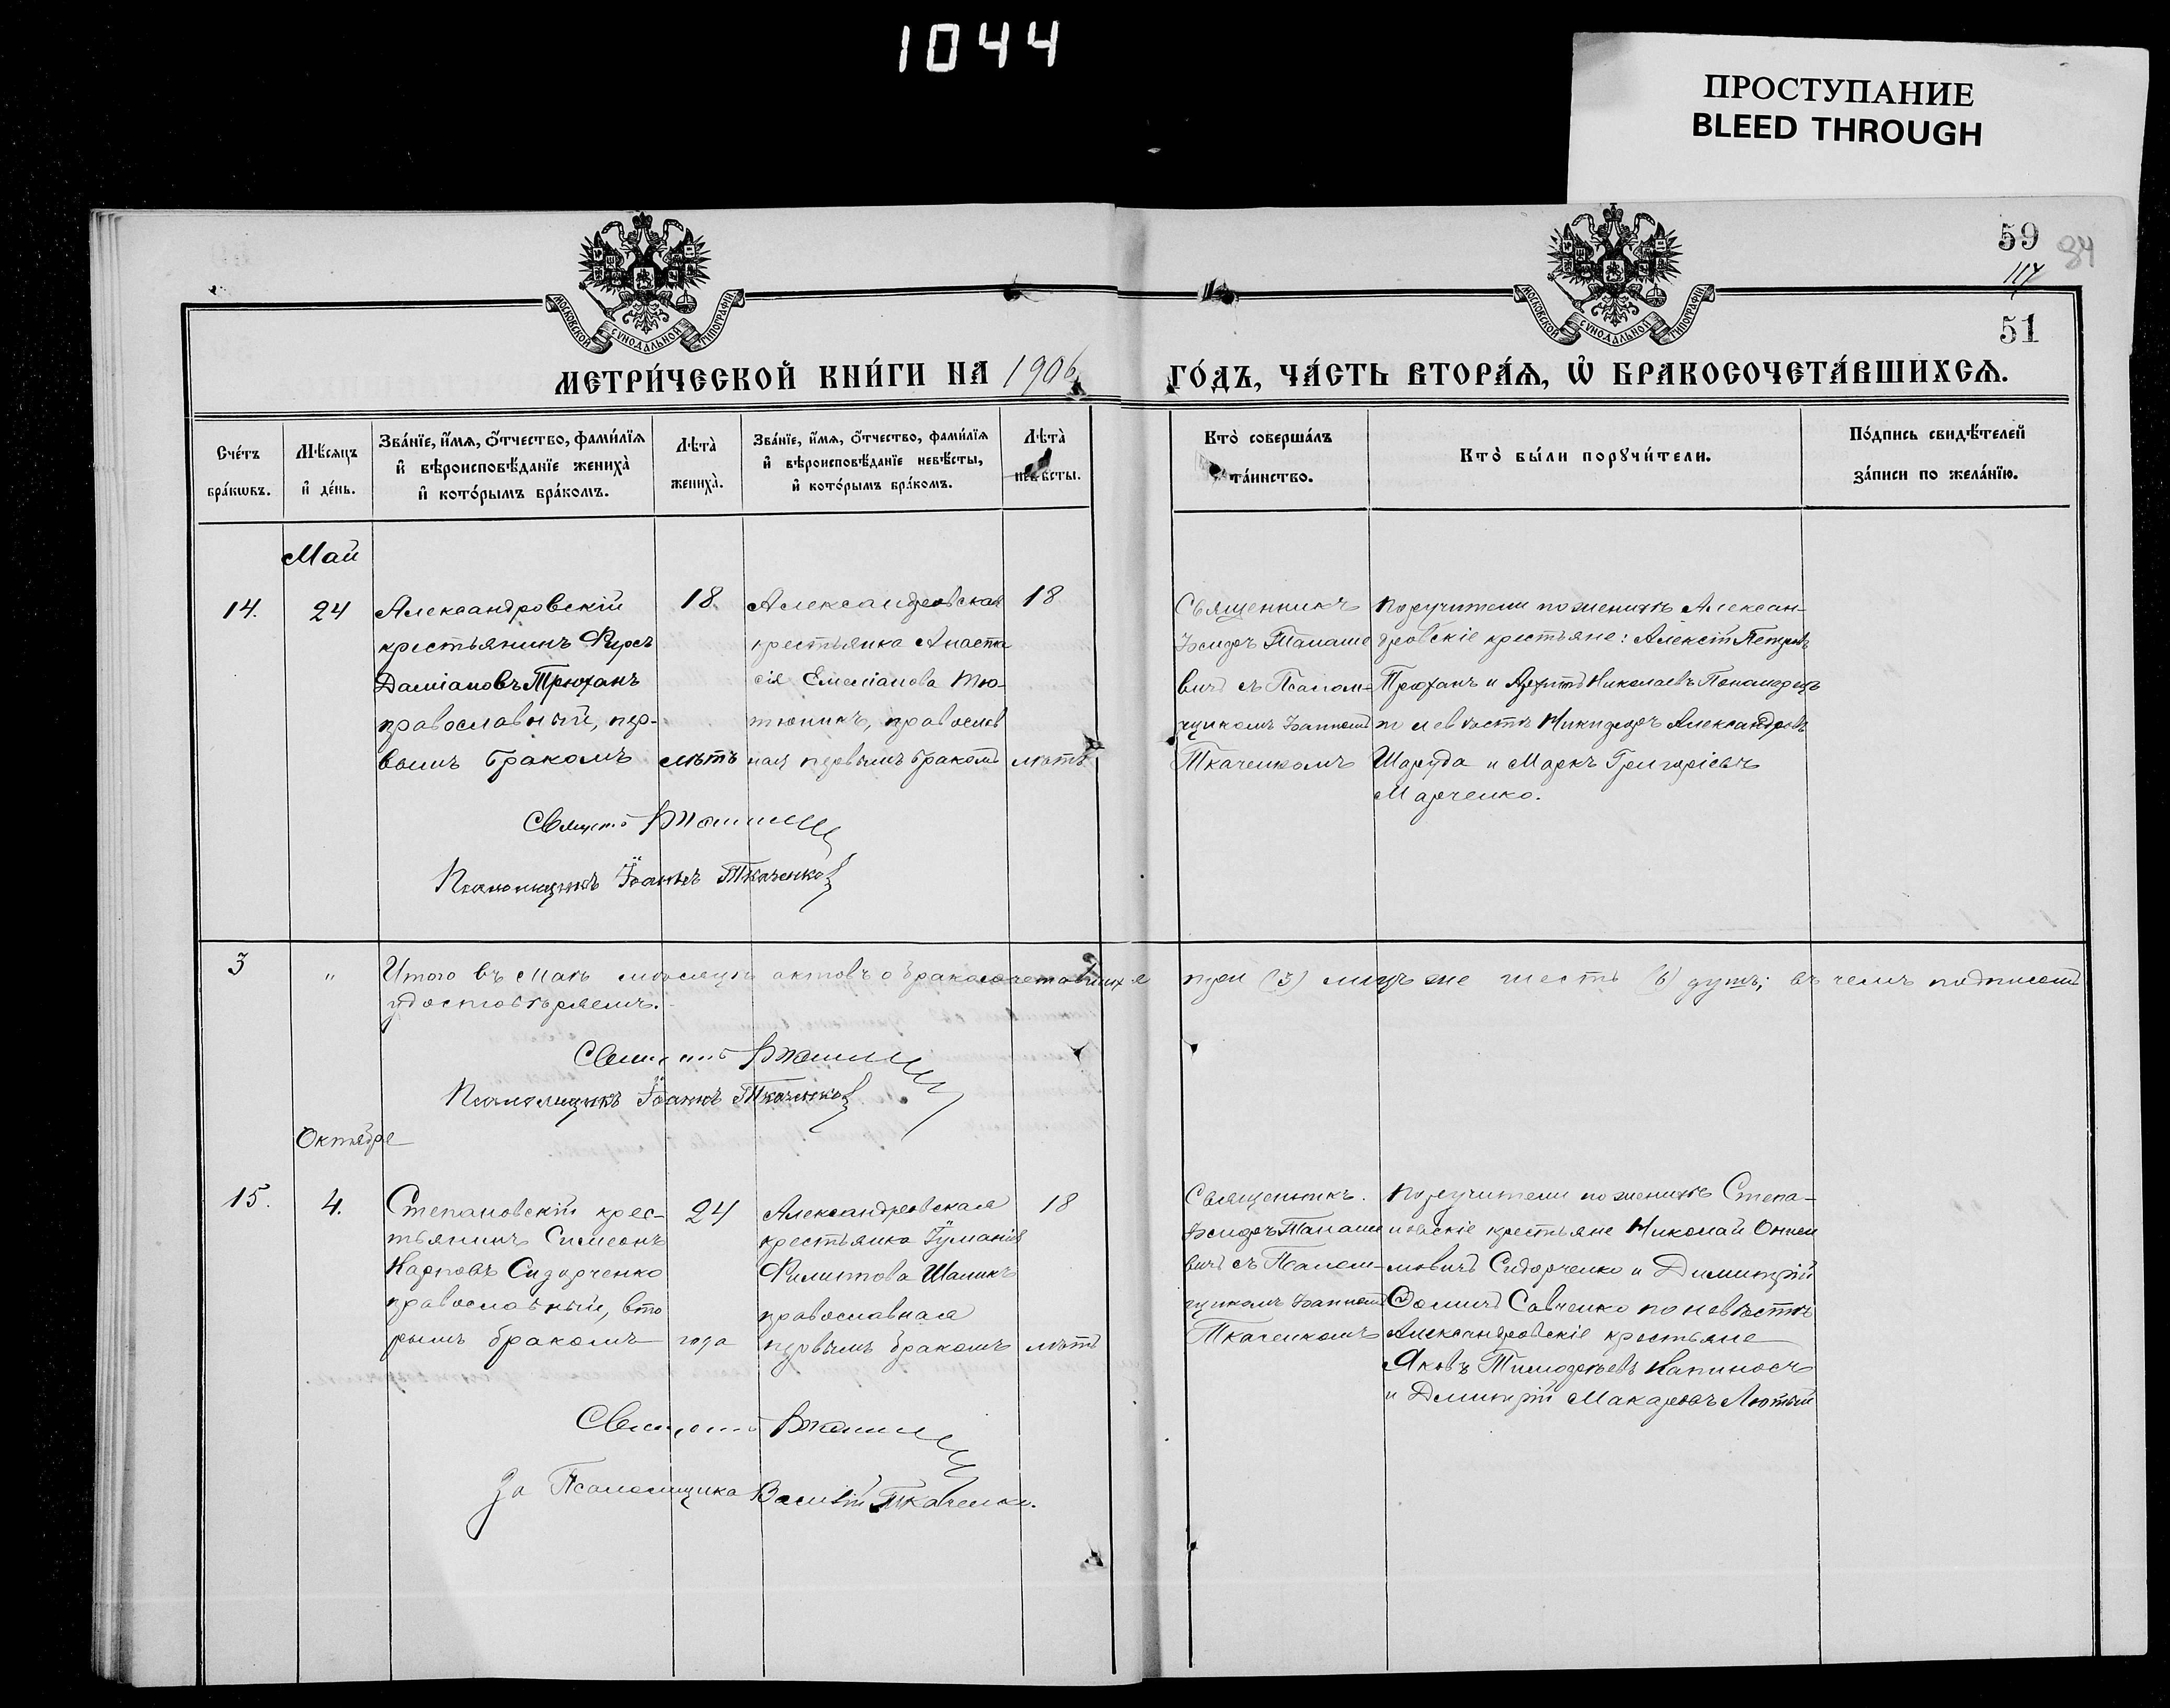 1044
ПРОСТУПАНИЕ
BLEED THROUGH
59
84
117
51
МОСКОВСКОЙ СѴНОДАЛЬНОЙ ТИПОГРАФІИ
МОСКОВСКОЙ СѴНОДАЛЬНОЙ ТИПОГРАФІИ
МЕТРИ́ЧЕСКОЙ КНИ́ГИ НА 1906 ГО́ДЪ, ЧА́СТЬ ВТОРА́Ѧ, Ѽ БРАКОСОЧЕТА́ВШИХСѦ.
Сче́тъ
бра́кѡвъ.
Мѣ́сяцъ
и҆ де́нь.
Зва́нїе, и҆́мѧ, ѻ҆́тчество, фами́лїѧ
и҆ вѣроисповѣ́данїе жениха̀
и҆ кото́рымъ бра́комъ.
Лѣ́та̀
жениха̀.
Зва́нїе, и҆́мѧ, ѻ҆́тчество, фами́лїѧ
и҆ вѣроисповѣ́данїе невѣ́сты,
и҆ кото́рымъ бра́комъ.
Лѣ́та̀
невѣ́сты.
Кто̀ соверша́лъ
та́инство.
Кто̀ бы́ли порꙋчи́тели.
По́дпись свидѣ́телей
за́писи по жела́нїю.
Май
14.
24
Александровскій
крестьянинъ Фирсъ
Даміановъ Трюханъ
православный, пер-
вымъ бракомъ
18
лѣтъ
Александровская
крестьянка Анаста
сія Емеліанова Тю-
тюникъ, православ
ная первымъ бракомъ
18
лѣтъ
Священникъ
вичъ съ Псалом-
щикомъ Іоанномъ
Ткаченкомъ
Поручители по женихѣ Алексан-
дровскіе крестьяне: Алексій Петровъ
Трюханъ и Николаевъ Пономарец
и невѣстѣ Никифоръ Александровъ
Шаруда и Маркъ Григоріевъ
Марченко.
Псаломщикъ Іоаннъ Ткаченко
3
"
Итого въ Маѣ мѣсяцѣ актовъ о бракосочетавшихся три (3) лицъ же шесть (6) душъ; въ чемъ подписомъ
удостовѣряемъ.
Псаломщикъ Іоаннъ Ткаченко
Октября
15.
4.
Степановскій крес-
тьянинъ Симеонъ
Карповъ Сидорченко
православный, вто
рымъ бракомъ
24
года
Александровская
крестьянка Іуманія
Филиппова Шаликъ
православная
первымъ бракомъ
18
лѣтъ
Священникъ.
вичъ съ Псалом-
щикомъ Іоанномъ
Ткаченкомъ
Поручители по женихѣ Степа-
новскіе крестьяне Николай
Сидорченко и Димитрій
Ѳомичъ Савченко по невѣстѣ
Александровскіе крестьяне
Яковъ Тимофеевъ Капиносъ
и Димитрій Макаровъ Лютый
За Псаломщика Василій Ткаченко.